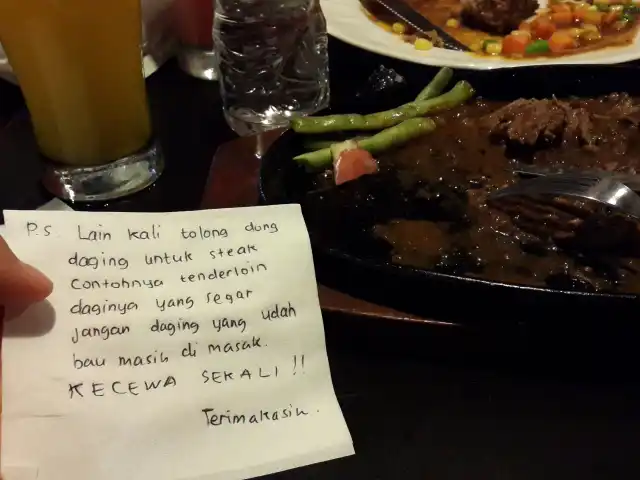 P.S. Lain kali tolong dong
daging untuk steak
Contohnya tenderloin
daginya yang segar
jangan daging yang udah
bau masih di masak.
KECEWA SEKALI !!
Terimakasih.